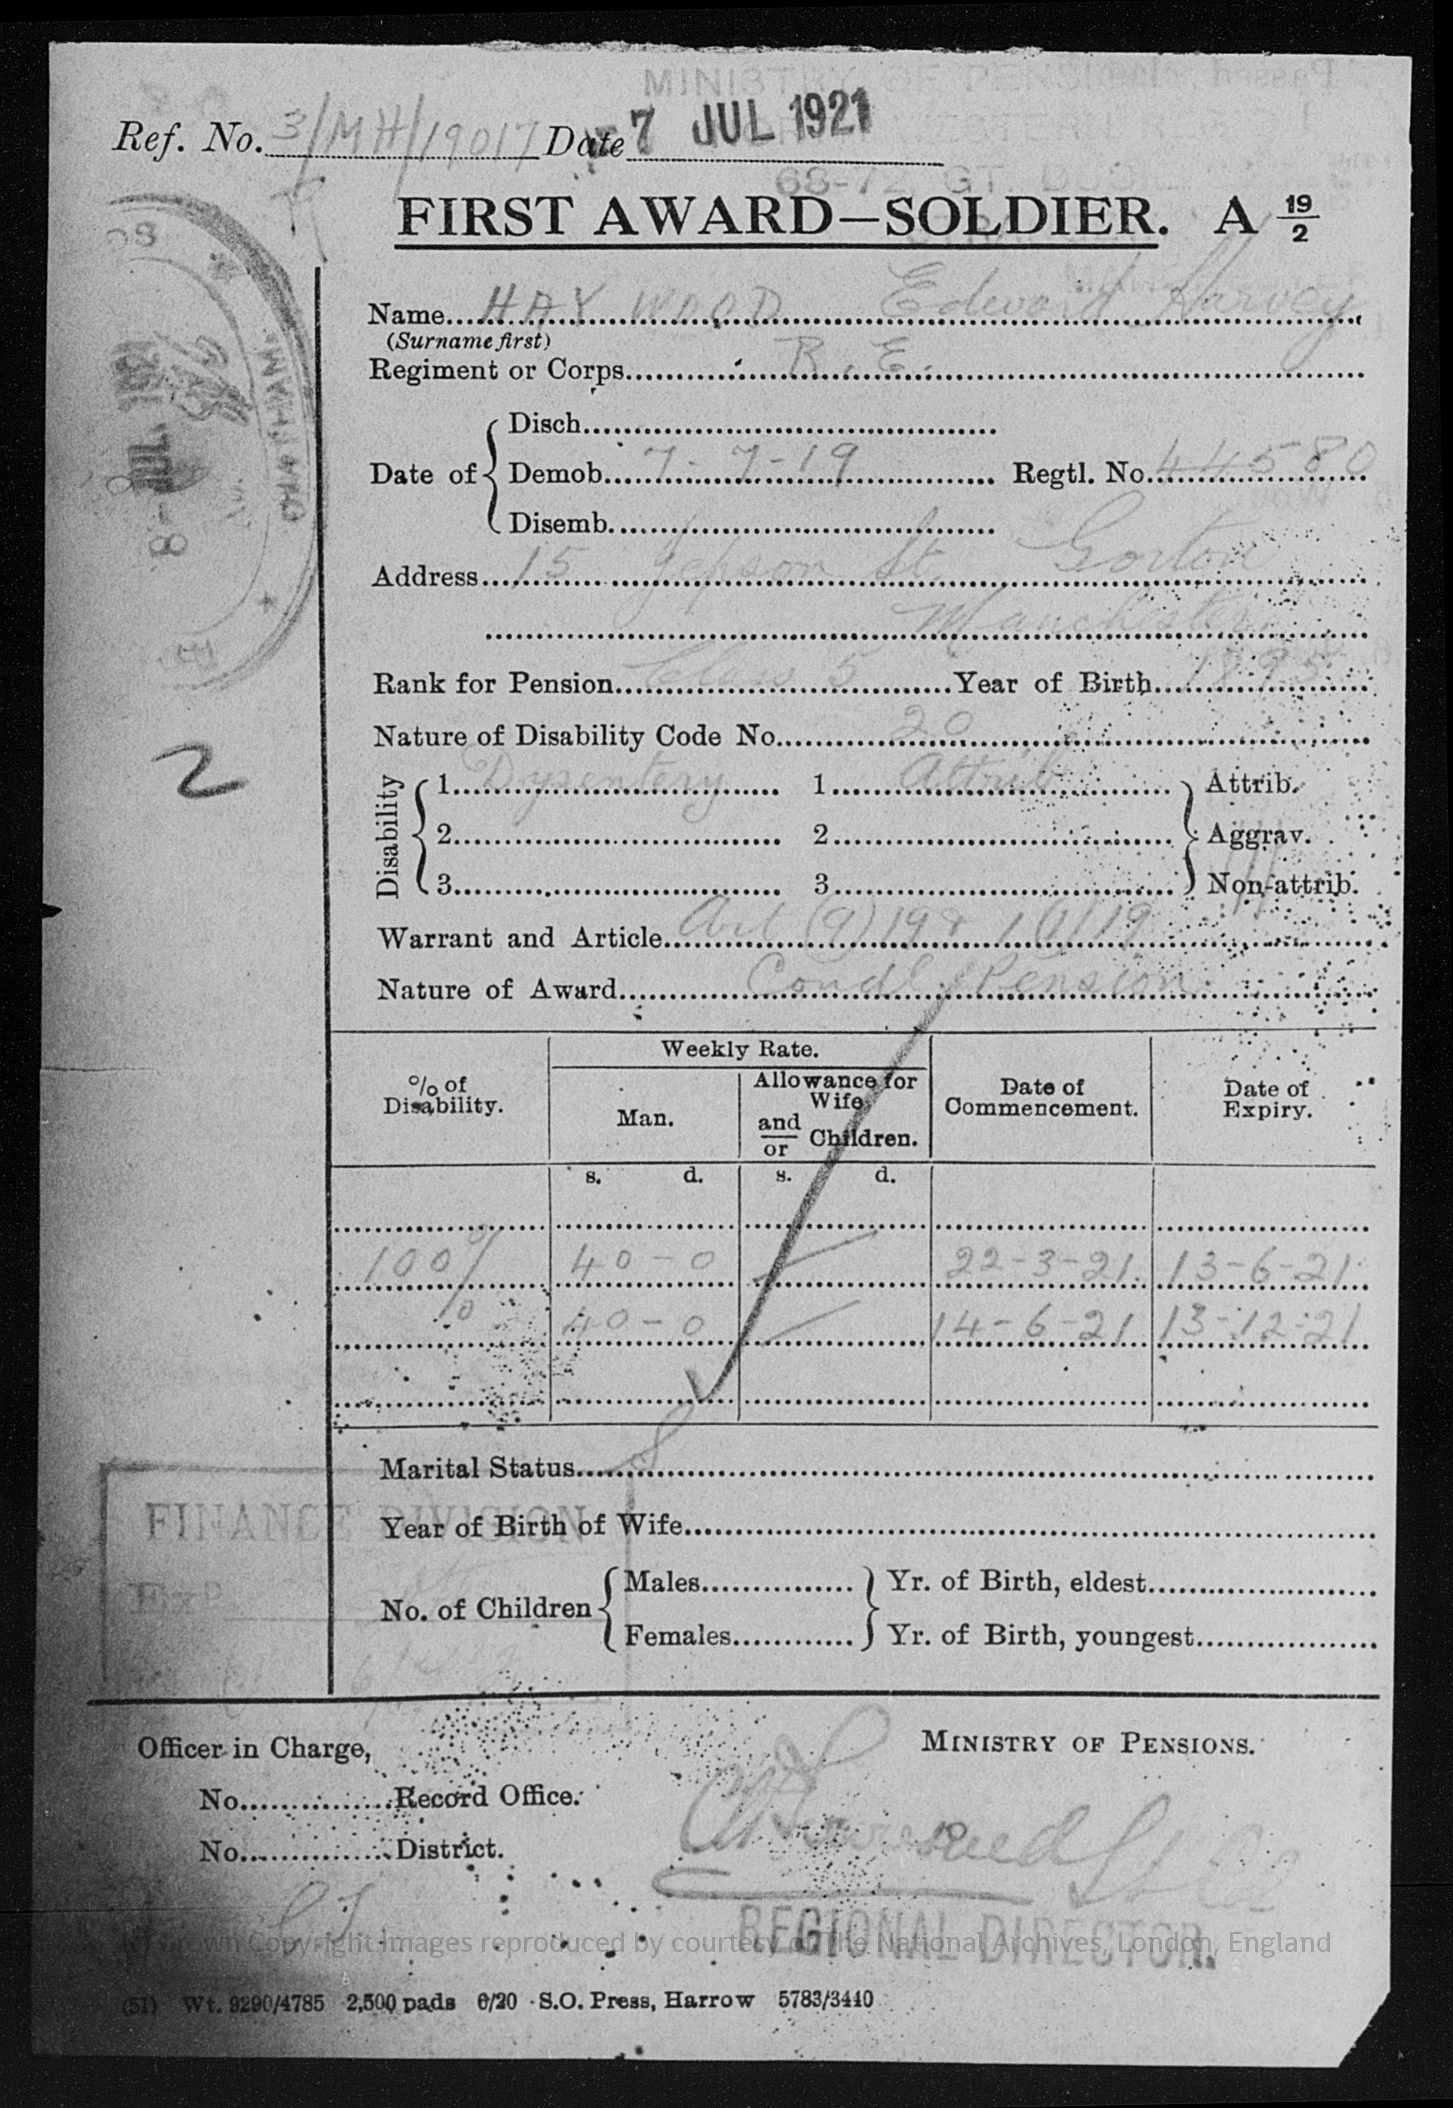 Ref. No. 3/MH/19017 Date 7 JUL 1921
FIRST AWARD—SOLDIER. A 19/2
Name HAYWOOD Edward Harvey
(Surname first)
Regiment or Corps R.E.
Date of { Disch.
Demob. 7-7-19 Regtl. No. 44580
Disemb.
Address 15 Jepson St. Gorton
Manchester
Rank for Pension Class 5 Year of Birth 1895
Nature of Disability Code No. 20
Disability { 1 Dysentery 1 Attrib } Attrib.
2 2 Aggrav.
3 3 Non-attrib.
Warrant and Article Art (9) 19 & 1(1)/19
Nature of Award Condl Pension
Weekly Rate.
% of Disability. Man. Allowance for Wife and/or Children. Date of Commencement. Date of Expiry.
s. d. s. d.
100% 40-0 22-3-21 13-6-21
40-0 14-6-21 13-12-21
2
Marital Status S
FINANCE DIVISION
Year of Birth of Wife
No. of Children { Males } Yr. of Birth, eldest
Females Yr. of Birth, youngest
Officer in Charge, MINISTRY OF PENSIONS.
No. Record Office.
No. District.
REGIONAL DIRECTOR.
(c) Crown Copyright Images reproduced by courtesy of The National Archives, London, England
(51) Wt. 9290/4785 2,500 pads 6/20 S.O. Press, Harrow 5783/3440